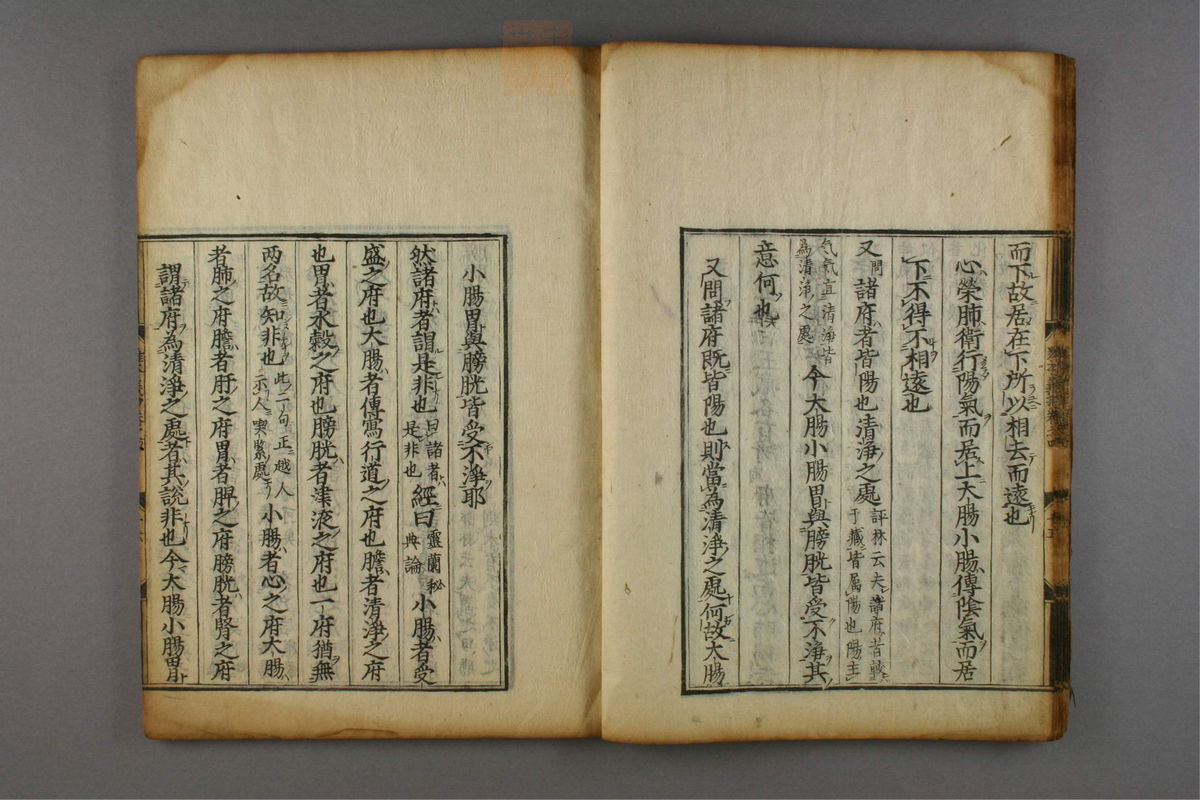 而下故居在下所以相去而遠也
心榮肺衛行陽氣而居上大腸小腸傳陰氣而居
下不得不相遠也
又問諸府者皆陽也清淨之處評林云夫諸府者藏六于藏皆属陽也陽主
气氣宜清淨皆為清淨之處今大腸小腸胃與膀胱皆受不淨其
意何也
又問諸府既皆陽也則當為清淨之處何故大腸
小腸胃與膀胱皆受不淨耶
然諸府者謂是非也曰諸者是非也經曰靈蘭秘典論小腸者受
盛之府也大腸者傳寫行道之府也膽者清淨之府
也胃者水穀之府也膀胱者津液之府也一府猶無
两名故知非也此一句正越人示人喫緊處小腸者心之府大腸
者肺之府膽者肝之府胃者脾之府膀胱者腎之府
謂諸府為清淨之處者其説非也今大腸小腸胃